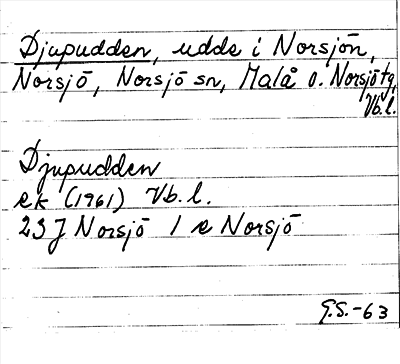 Djupudden, udde i Norsjön,
Norsjö, Norsjö sn, Malå o. Norsjö tg,
Vb. l.
Djupudden
ek (1961) Vb. l.
23J Norsjö 1 e Norsjö
G.S.-63